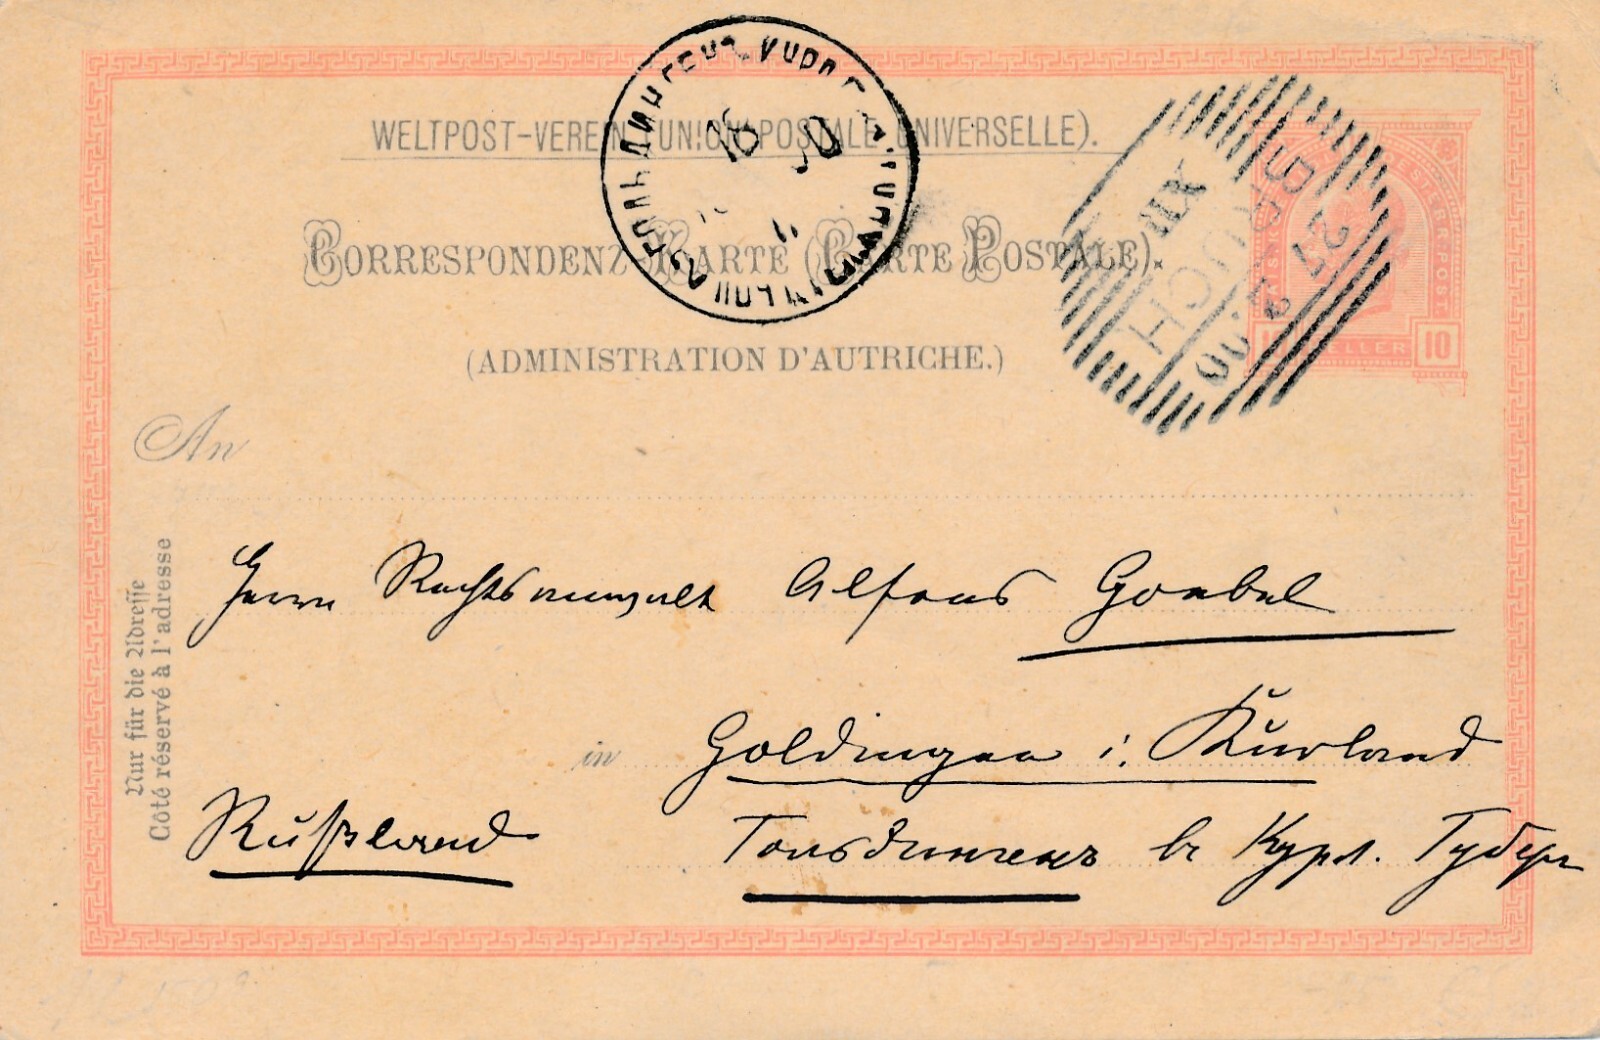 WELTPOST-VEREIN (UNION POSTALE UNIVERSELLE).
CORRESPONDENZ-KARTE (CARTE POSTALE).
(ADMINISTRATION D'AUTRICHE.)
BRUCK
27 3 00
XII
10
HELLER
An
Nur für die Adresse
Côté réservé à l'adresse
Herrn Rechtsanwalt Alfons Goebel
in Goldingen i. Kurland
Rußland Гольдингенъ въ Курл. Губерн